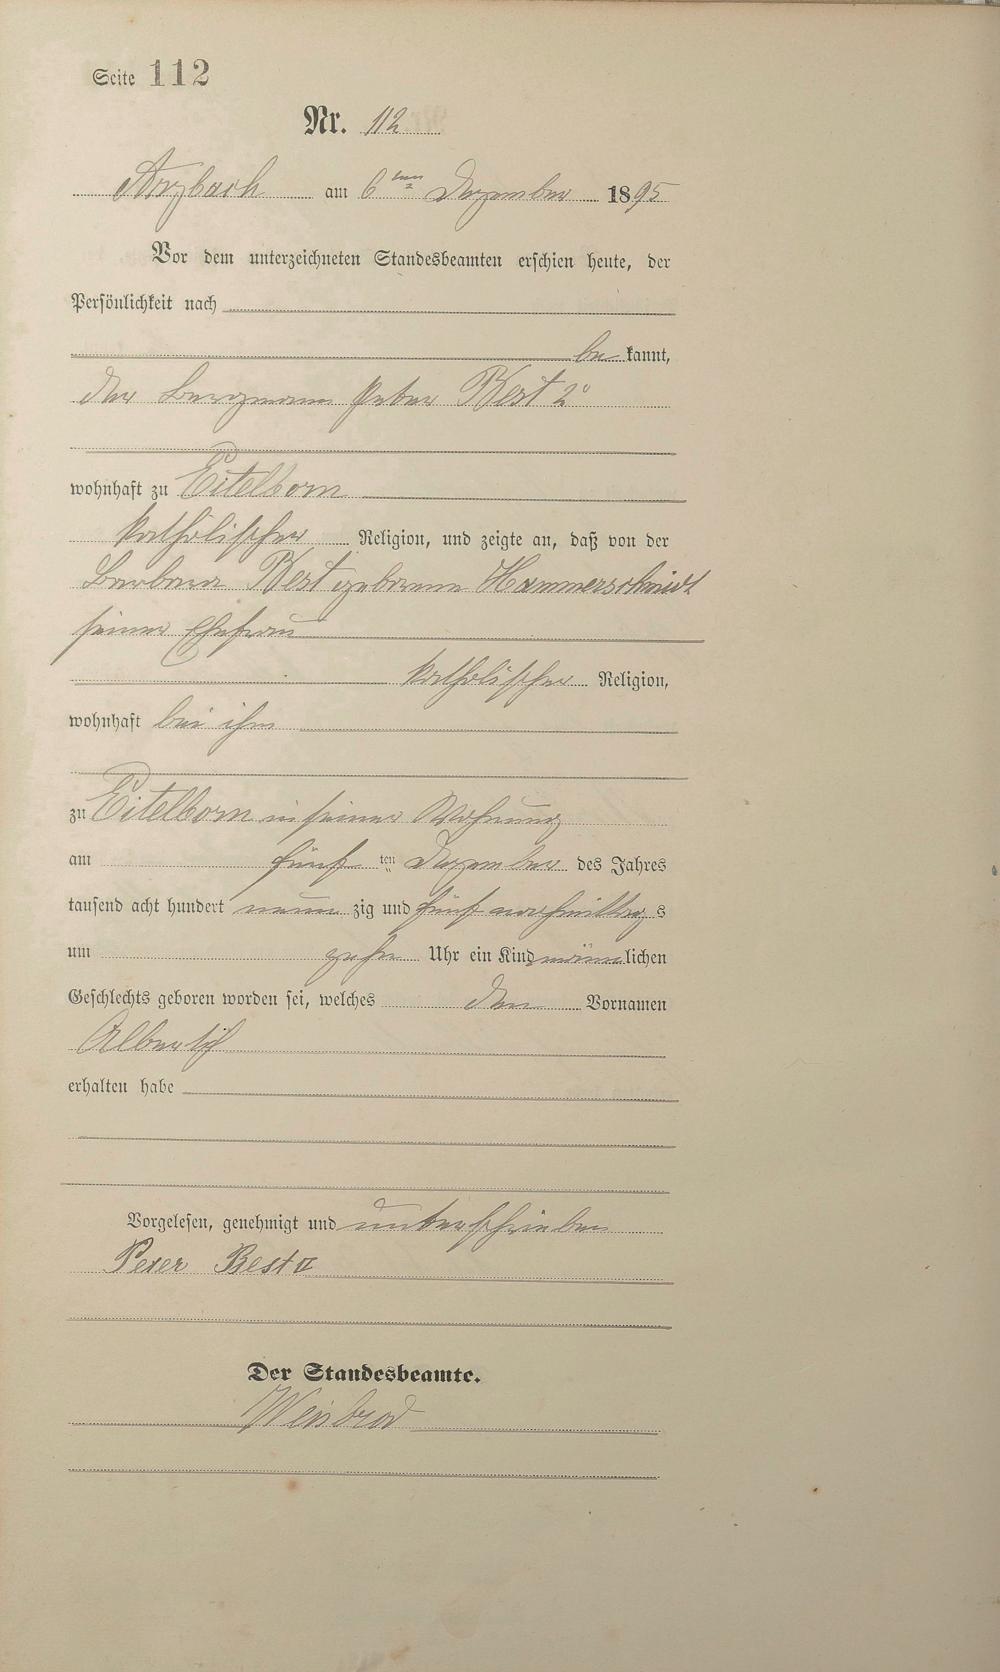 Seite 112
Nr. 112
Arzbach am 6ten Dezember 1895
Vor dem unterzeichneten Standesbeamten erschien heute, der
Persönlichkeit nach
bekannt,
der Bergmann Peter Best 2°
wohnhaft zu Eitelborn
katholischer Religion, und zeigte an, daß von der
Barbara Best geborene Hammerschmidt
seiner Ehefrau
katholischer Religion,
wohnhaft bei ihm
zu Eitelborn in seiner Wohnung
am fünften Dezember des Jahres
tausend acht hundert neunzig und fünf nachmittags
um zehn Uhr ein Kind männlichen
Geschlechts geboren worden sei, welches den Vornamen
erhalten habe
Vorgelesen, genehmigt und unterschrieben
Peter Best II
Der Standesbeamte.
Weisbrod